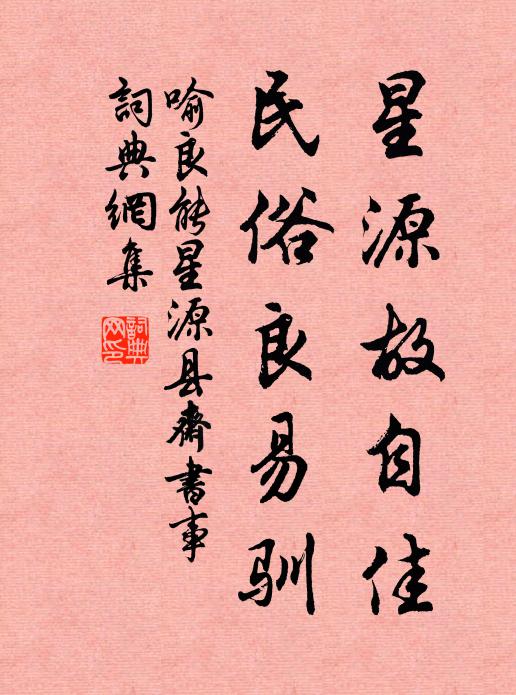 星源故自佳
民俗良易驯
喻良能星源县斋书事
詞典網集
詞典網印